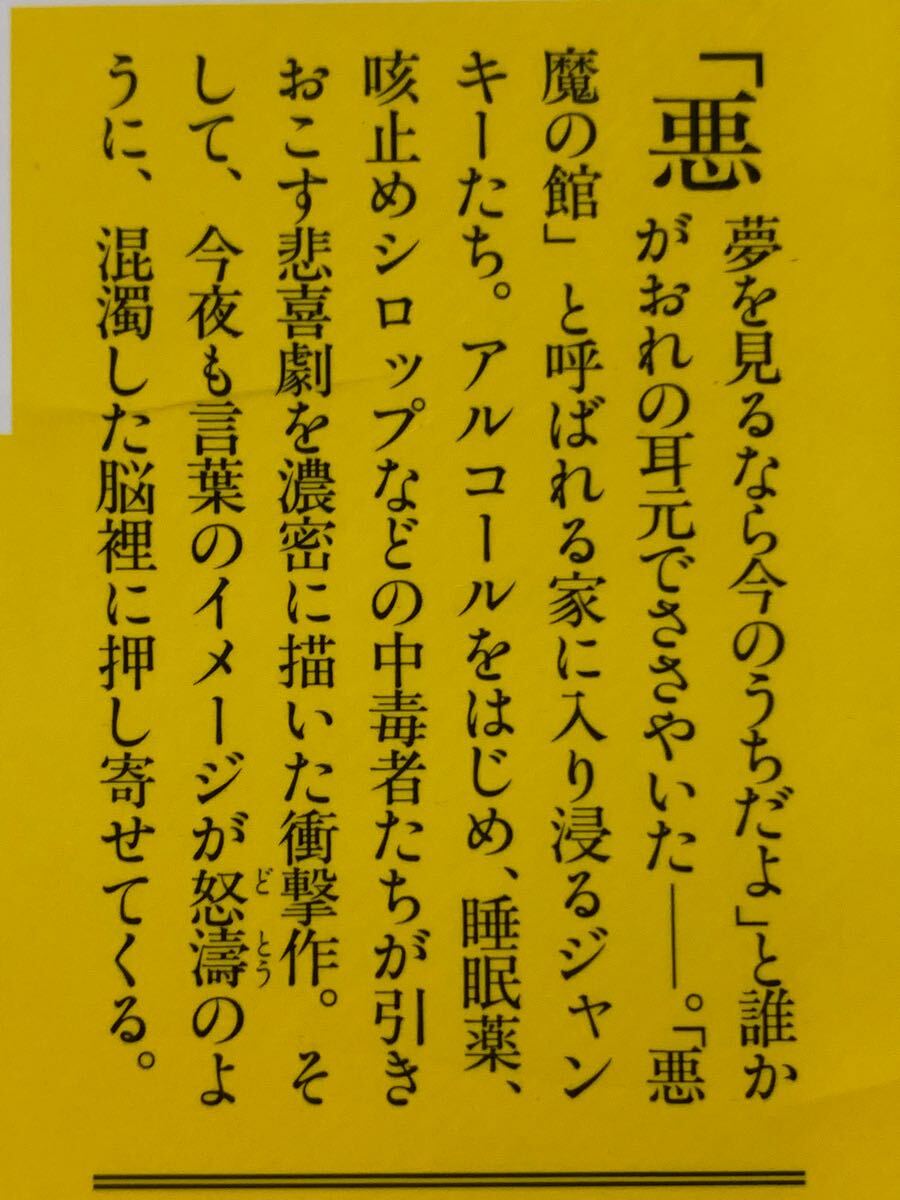 「悪夢を見るなら今のうちだよ」と誰か
がおれの耳元でささやいた――。「悪
魔の館」と呼ばれる家に入り浸るジャン
キーたち。アルコールをはじめ、睡眠薬、
咳止めシロップなどの中毒者たちが引き
おこす悲喜劇を濃密に描いた衝撃作。そ
して、今夜も言葉のイメージが怒濤のよ
うに、混濁した脳裡に押し寄せてくる。
どとう